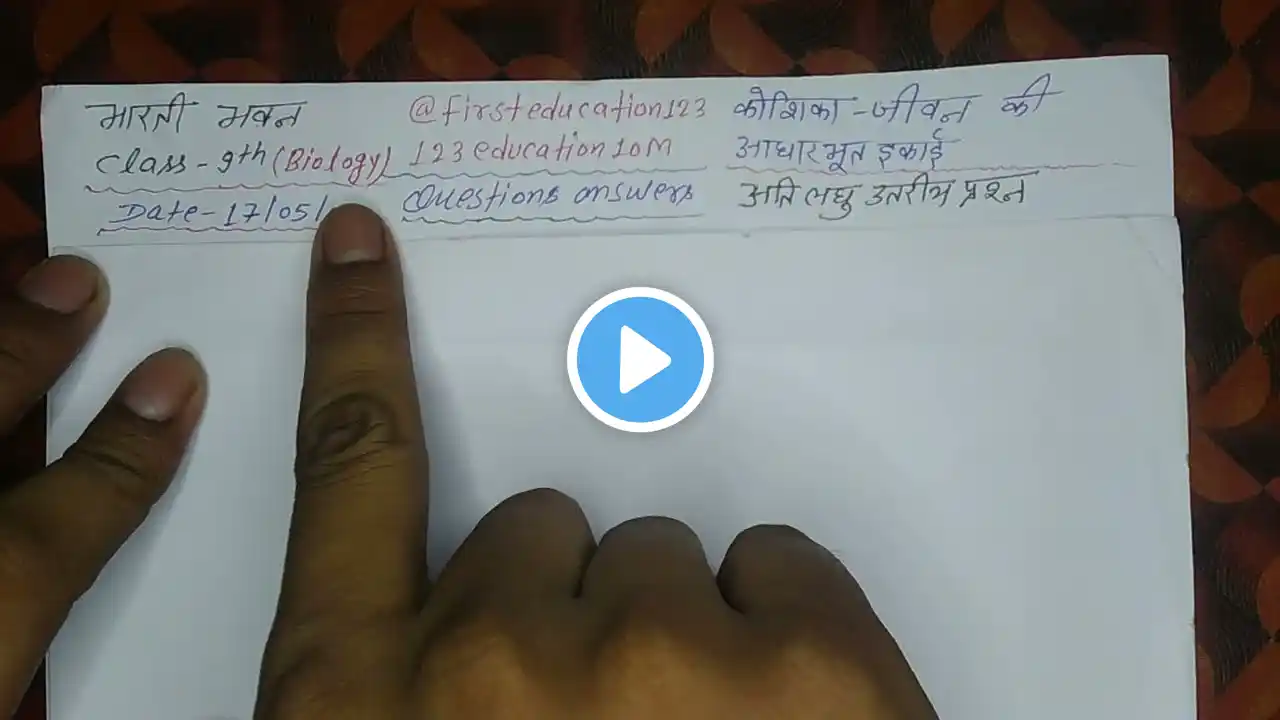 भारती भवन
Class - 9th (Biology)
Date - 17/05/
@firsteducation123
123education10M
Questions answers
कोशिका - जीवन की
आधारभूत इकाई
अति लघु उतरीय प्रश्न